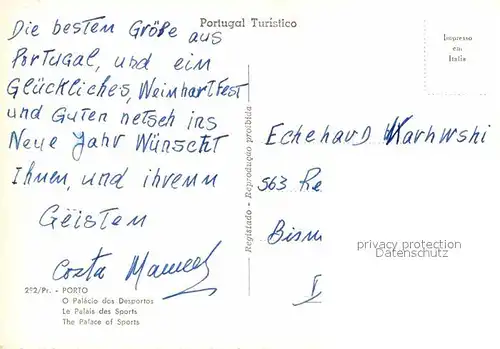 Portugal Turistico
Impresso
em
Italia
Die besten Größe aus
Portugal, und ein
Glückliches, Weinhartfest
und Guten netsch ins
Neue Jahr Wünscht
Ihnen, und ihrenn
Geisten
Costa Manuel
Registado - Reprodução proibida
Echehard
563 Re
Bism
privacy protection
Datenschutz
2º2/Pr. - PORTO
O Palácio dos Desportos
Le Palais des Sports
The Palace of Sports